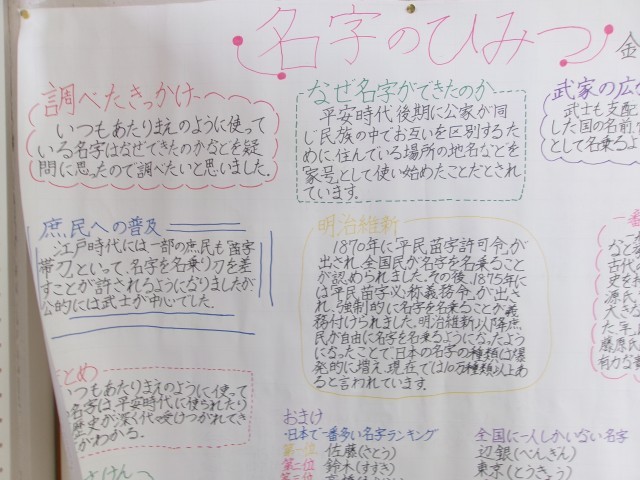 名字のひみつ
金
調べたきっかけ
いつもあたりまえのように使って
いる名字はなぜできたのかなどを疑
問に思ったので調べたいと思いました。
なぜ名字ができたのか
平安時代後期に公家が同
じ民族の中でお互いを区別するた
めに、住んでいる場所の地名などを
家号として使い始めたことだとされ
ています。
武家の広が
武士も支配
した国の名前
として名乗るよ
庶民への普及
江戸時代には一部の庶民も「苗字
帯刀」といって、名字を名乗り刀を差
すことが許されるようになりましたが
公的には武士が中心でした。
明治維新
1870年に「平民苗字許可令」が
出され、全国民が名字を名乗ること
が認められました。その後、1875年に
は「平民苗字必称義務令」が出さ
れ、強制的に名字を名乗ることが義
務付けられました。明治維新以降庶
民が自由に名字を名乗るようになったよう
になったことで、日本の名字の種類は爆
発的に増え、現在では10万種類以上あ
ると言われています。
一番
など
古代
史を持
源氏
大き
た平
藤原氏
有力な
とめ
いつもあたりまえのように使って
る名字は、平安時代に使られたり
歴史が深く代々受けつがれてき
がわかる。
さけん
おまけ
・日本で一番多い名字ランキング
第一位 佐藤(さとう)
第二位 鈴木(すずき)
第三位
全国に一人しかいない名字
辺銀(ぺんぎん)
東京(とうきょう)